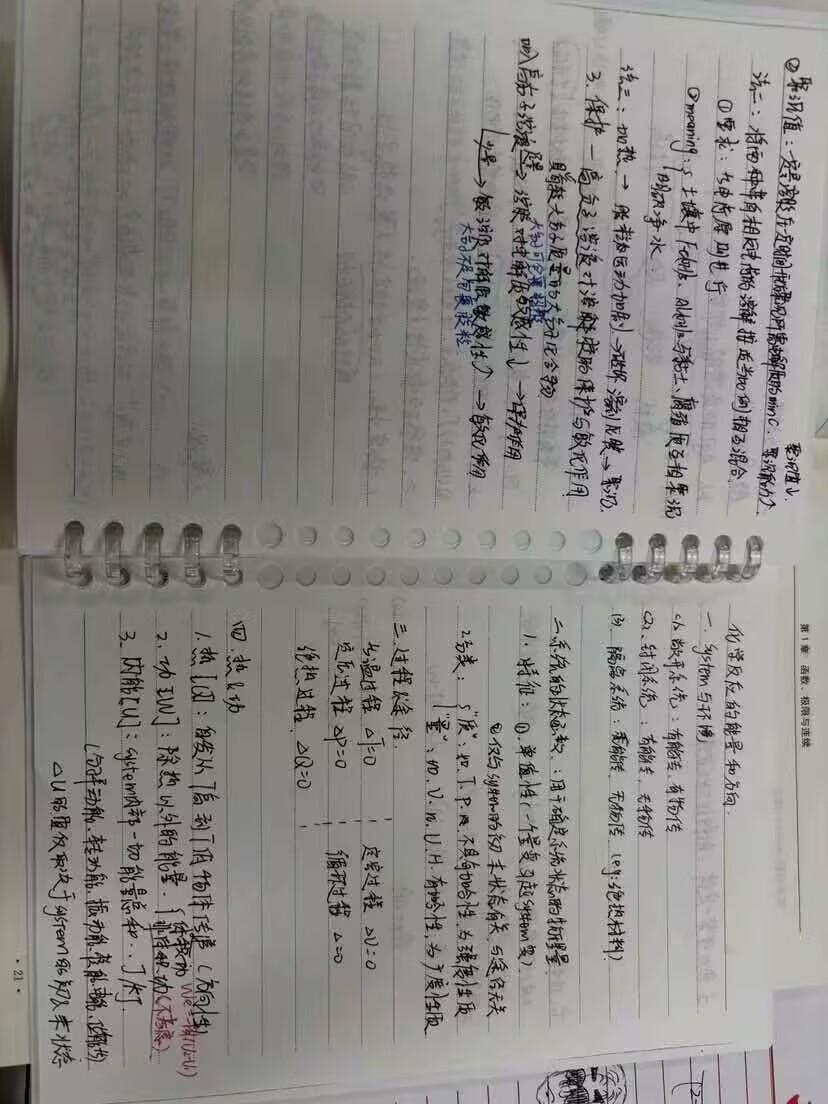 ②聚沉值：一定量溶胶在一定时间开始聚沉所需电解质的min C.
聚沉值↓.
聚沉能力↑.
法二：将两种带有相反电荷的溶解按适当比例相互混合.
①要求：与电荷原则进行
②meaning：土壤中Fe(OH)₃、Al(OH)₃与黏土、腐殖质互相聚沉
明矾净水
法三：加热 → 胶粒运动加剧 → 破坏溶剂化膜 → 聚沉.
3. 保护 — 高分子溶液对溶解胶的保护与敏化作用
具有较大分子质量的大分子化合物
大分子可包裹胶粒
加入高分子溶液 足量→ 溶胶对电解质敏感性↓ → 保护作用
少量→ 溶液对电解质敏感性↑ → 敏化作用
大分子不足包裹胶粒
第1章 函数、极限与连续
化学反应的能量和方向.
一. System与环境
(1). 敞开系统：有能传，有物传
(2). 封闭系统：有能传，无物传
(3). 隔离系统：无能传，无物传 (eg:绝热材料)
二. 系统的状态函数.：用于确定系统状态的物理量
1. 特征：①. 单值性(一个量变引起system变)
②仅与system的初末状态有关，与途径无关
2. 分类："质"：如.T.P. 不具有加合性，为强度性质
"量"：如.V.n.U.H.有加合性，为广度性质
三. 过程&途径.
等温过程 △T=0
定容过程 △V=0
定压过程 △P=0
循环过程 △=0
绝热过程. △Q=0
四. 热&功
1. 热[Q]：自发从T高到T低物体传递 (方向性)
2. 功[W]：除热以外的能量. 体积功 We=
非体积功(不考虑)
3. 内能[U]：system内部一切能量总和.. J/kJ.
(分子平动能、转动能、振动能、
△U的值仅取决于system的初&末状态
· 21 ·